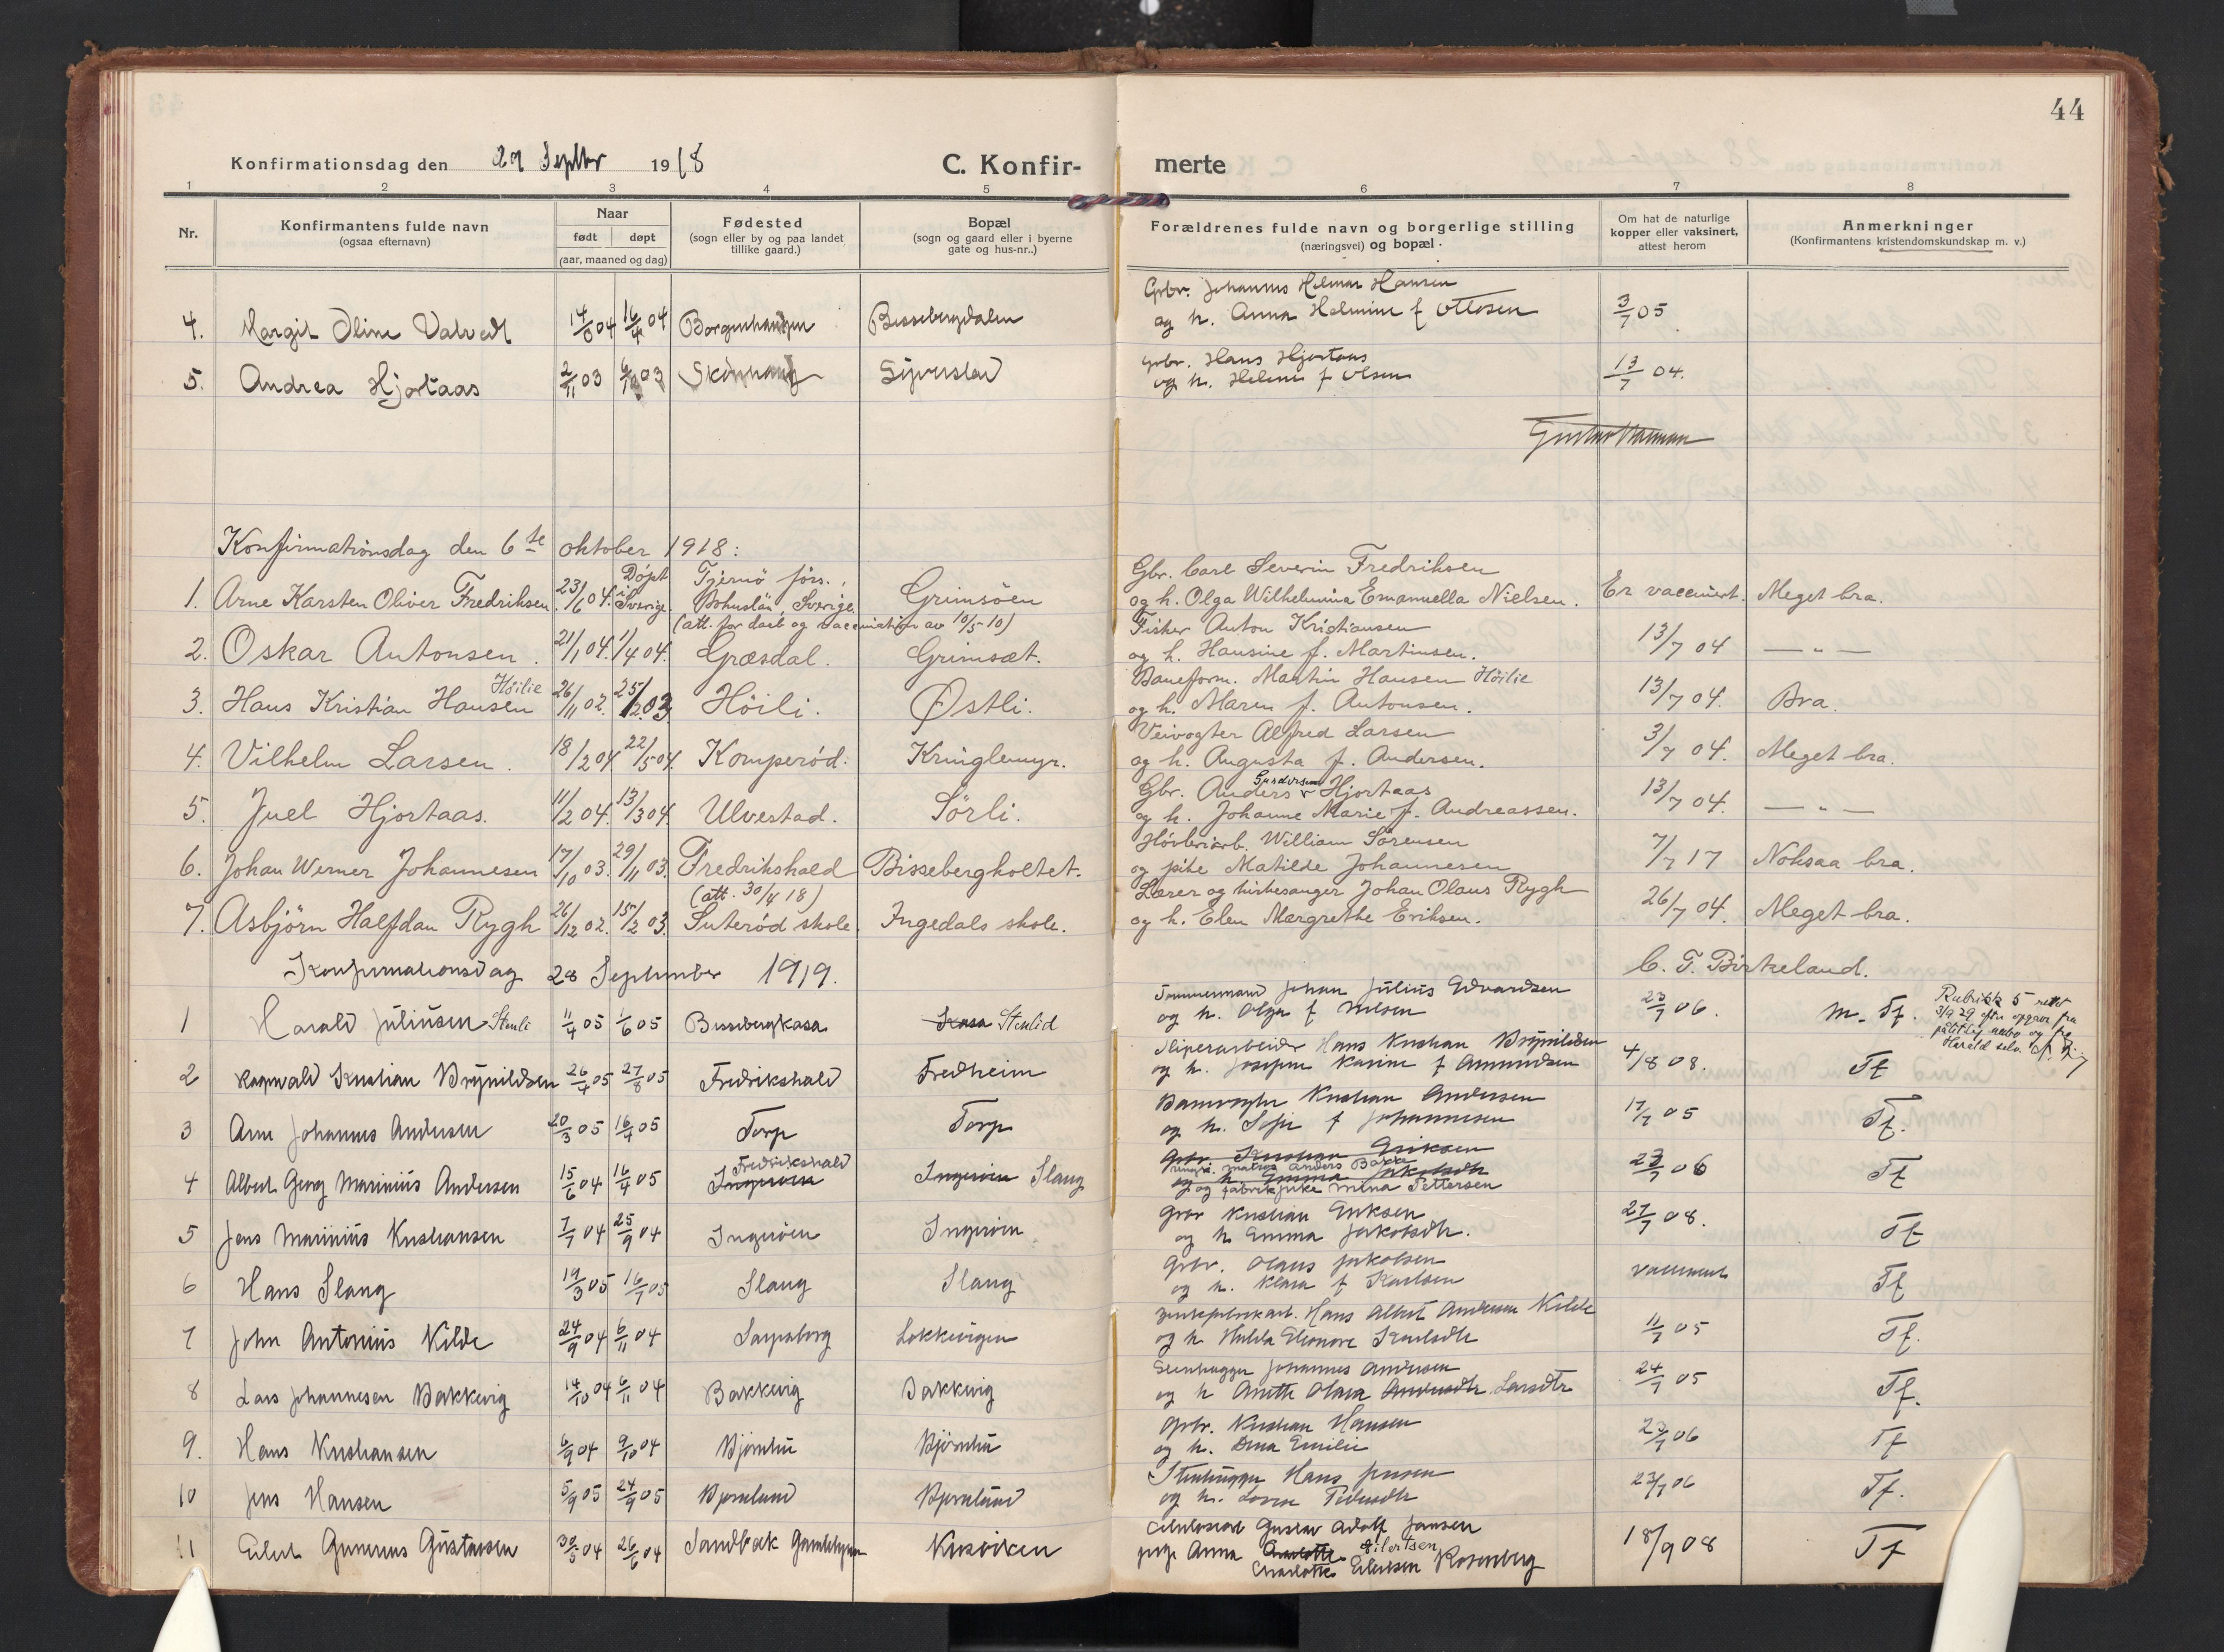 44
Konfirmationsdag den 29 Septbr 1918 C. Konfirmerte
1 2 3 4 5 6 7 8
Nr. Konfirmantens fulde navn (ogsaa efternavn) Naar født døpt (aar, maaned og dag) Fødested (sogn eller by og paa landet tillike gaard.) Bopæl (sogn og gaard eller i byerne gate og hus-nr..) Forældrenes fulde navn og borgerlige stilling (næringsvei) og bopæl. Om hat de naturlige kopper eller vaksinert, attest herom Anmerkninger (Konfirmantens kristendomskundskap m. v.)
Gbr. Johannes Helmar Hansen
4. Margit Oline 04 16/4 04 Bissebergdalen og h. Anna Helmine f Ottosen 3/7 05
Gbr. Hans Hjortaas
5. Andrea Hjortaas 2/11 03 03 og h. Helene f Olsen 13/7 04.
Konfirmationsdag den 6te oktober 1918:
Döpt Tjernö förs., Gbr. Carl Severin Fredriksen
1. Arne Karsten Oliver Fredriksen. 23/6 04. i Sverige. Bohuslän, Sverige. Grimsöen og h. Olga Wilhelmina Emanuella Nielsen. Er vaccinert. Meget bra.
(att. for daab og vaccination av 10/5 10) Fisker Anton Kristiansen
2. Oskar Antonsen. 21/1 04. 1/4 04. Græsdal. Grimsæt. og h. Hansine f. Martinsen. 13/7 04 — " —
Höilie Baneform. Martin Hansen Höilie
3. Hans Kristian Hansen 26/11 02. 25/1203 Höili. Østli. og h. Maren f. Antonsen. 13/7 04. Bra.
Veivogter Alfred Larsen
4. Vilhelm Larsen. 18/2 04. 22/5 04. Komperöd. Kringlemyr. og h. Augusta f. Andersen. 3/7 04. Meget bra.
Gbr. Anders Gundersen Hjortaas
5. Juel Hjortaas. 11/2 04. 13/3 04. Ulvestad. Sörli. og h. Johanne Marie f. Andreassen. 13/7 04. — " —
Hövleriarb. William Sörensen
6. Johan Werner Johannesen 17/10 03. 29/11 03. Fredrikshald Bissebergholtet. og pike Matilde Johannesen 7/7 17 Noksaa bra.
(att. 30/4 18) Lærer og kirkesanger Johan Olaus Rygh
7. Asbjörn Halfdan Rygh 26/12 02. 15/2 03. Suteröd skole. Ingedals skole. og h. Elen Margrethe Eriksen. 26/7 04. Meget bra.
Konfirmationsdag 28 September 1919. C. F. Birkeland.
Tømmermand Johan Julius Edvardsen Rubrikk 5 rettet
1 Harald Juliusen Stenli 11/4 05 1/6 05 Bissebergkasa Kasa Stenlid og h. Olga f Nilsen 23/7 06. M. Tf. 3/9 29 efter opgave fra
Herald selv.
Sliperarbeider Hans Kristian Brynildsen
2 Ragnvald Kristian Brynildsen 26/4 05 27/8 05 Fredrikshald Fredheim og h. Josefine Karine f Amundsen 4/8 08. Tf
Banevogter Kristian Andersen
3 Arne Johannes Andersen 20/3 05 16/4 05 Torp Torp og h. Sofie f Johannesen 17/7 05 Tf.
Fredrikshald Gbr. Kristian Eriksen
ungk. matros Anders Bakke
4 Albert Georg Marinius Andersen 15/6 04 16/4 05 Ingeröen Ingeröen Slang og h Emma Jakobsdtr 23/7 06 Tf
og fabrikpike Mina Pettersen
Gbr Kristian Eriksen
5 Jens Marinius Kristiansen 7/7 04 25/9 04 Ingeröen Ingeröen og h Emma Jakobsdtr. 27/7 08. Tf
Gbr. Olaus Jakobsen
6 Hans Slang 19/3 05 16/7 05 Slang Slang og h. Klara f Karlsen Tf
Hans Albert Andersen Kilde
7 John Antonius Kilde 24/9 04 6/11 04 Sarpsborg Lokkevigen og h Hulda Eleonore Karlsdtr 11/7 05 Tf.
Stenhugger Johannes Andersen
8 Lars Johannesen Bakkevig 14/10 04 6/11 04 Bakkevig Bakkevig og h Anette Olava Andersdtr. Larsdtr 24/7 05 Tf.
Gbr. Kristian Hansen
9. Hans Kristiansen 6/9 04 9/10 04 og h. Dina Emilie 23/7 06 Tf
Stenhugger Hans Jensen
10 Jens Hansen 5/9 05 24/9 05 Bjørnlund Bjørnlund og h. 23/7 06 Tf.
Gustav Adolf Jansen
11 Eilert Gunerius Gustavsen 30/5 04 26/6 04 Sandbæk pige Anna Charlotte Eilertsen 18/9 08 Tf
Charlotte Eilertsen Rosenberg